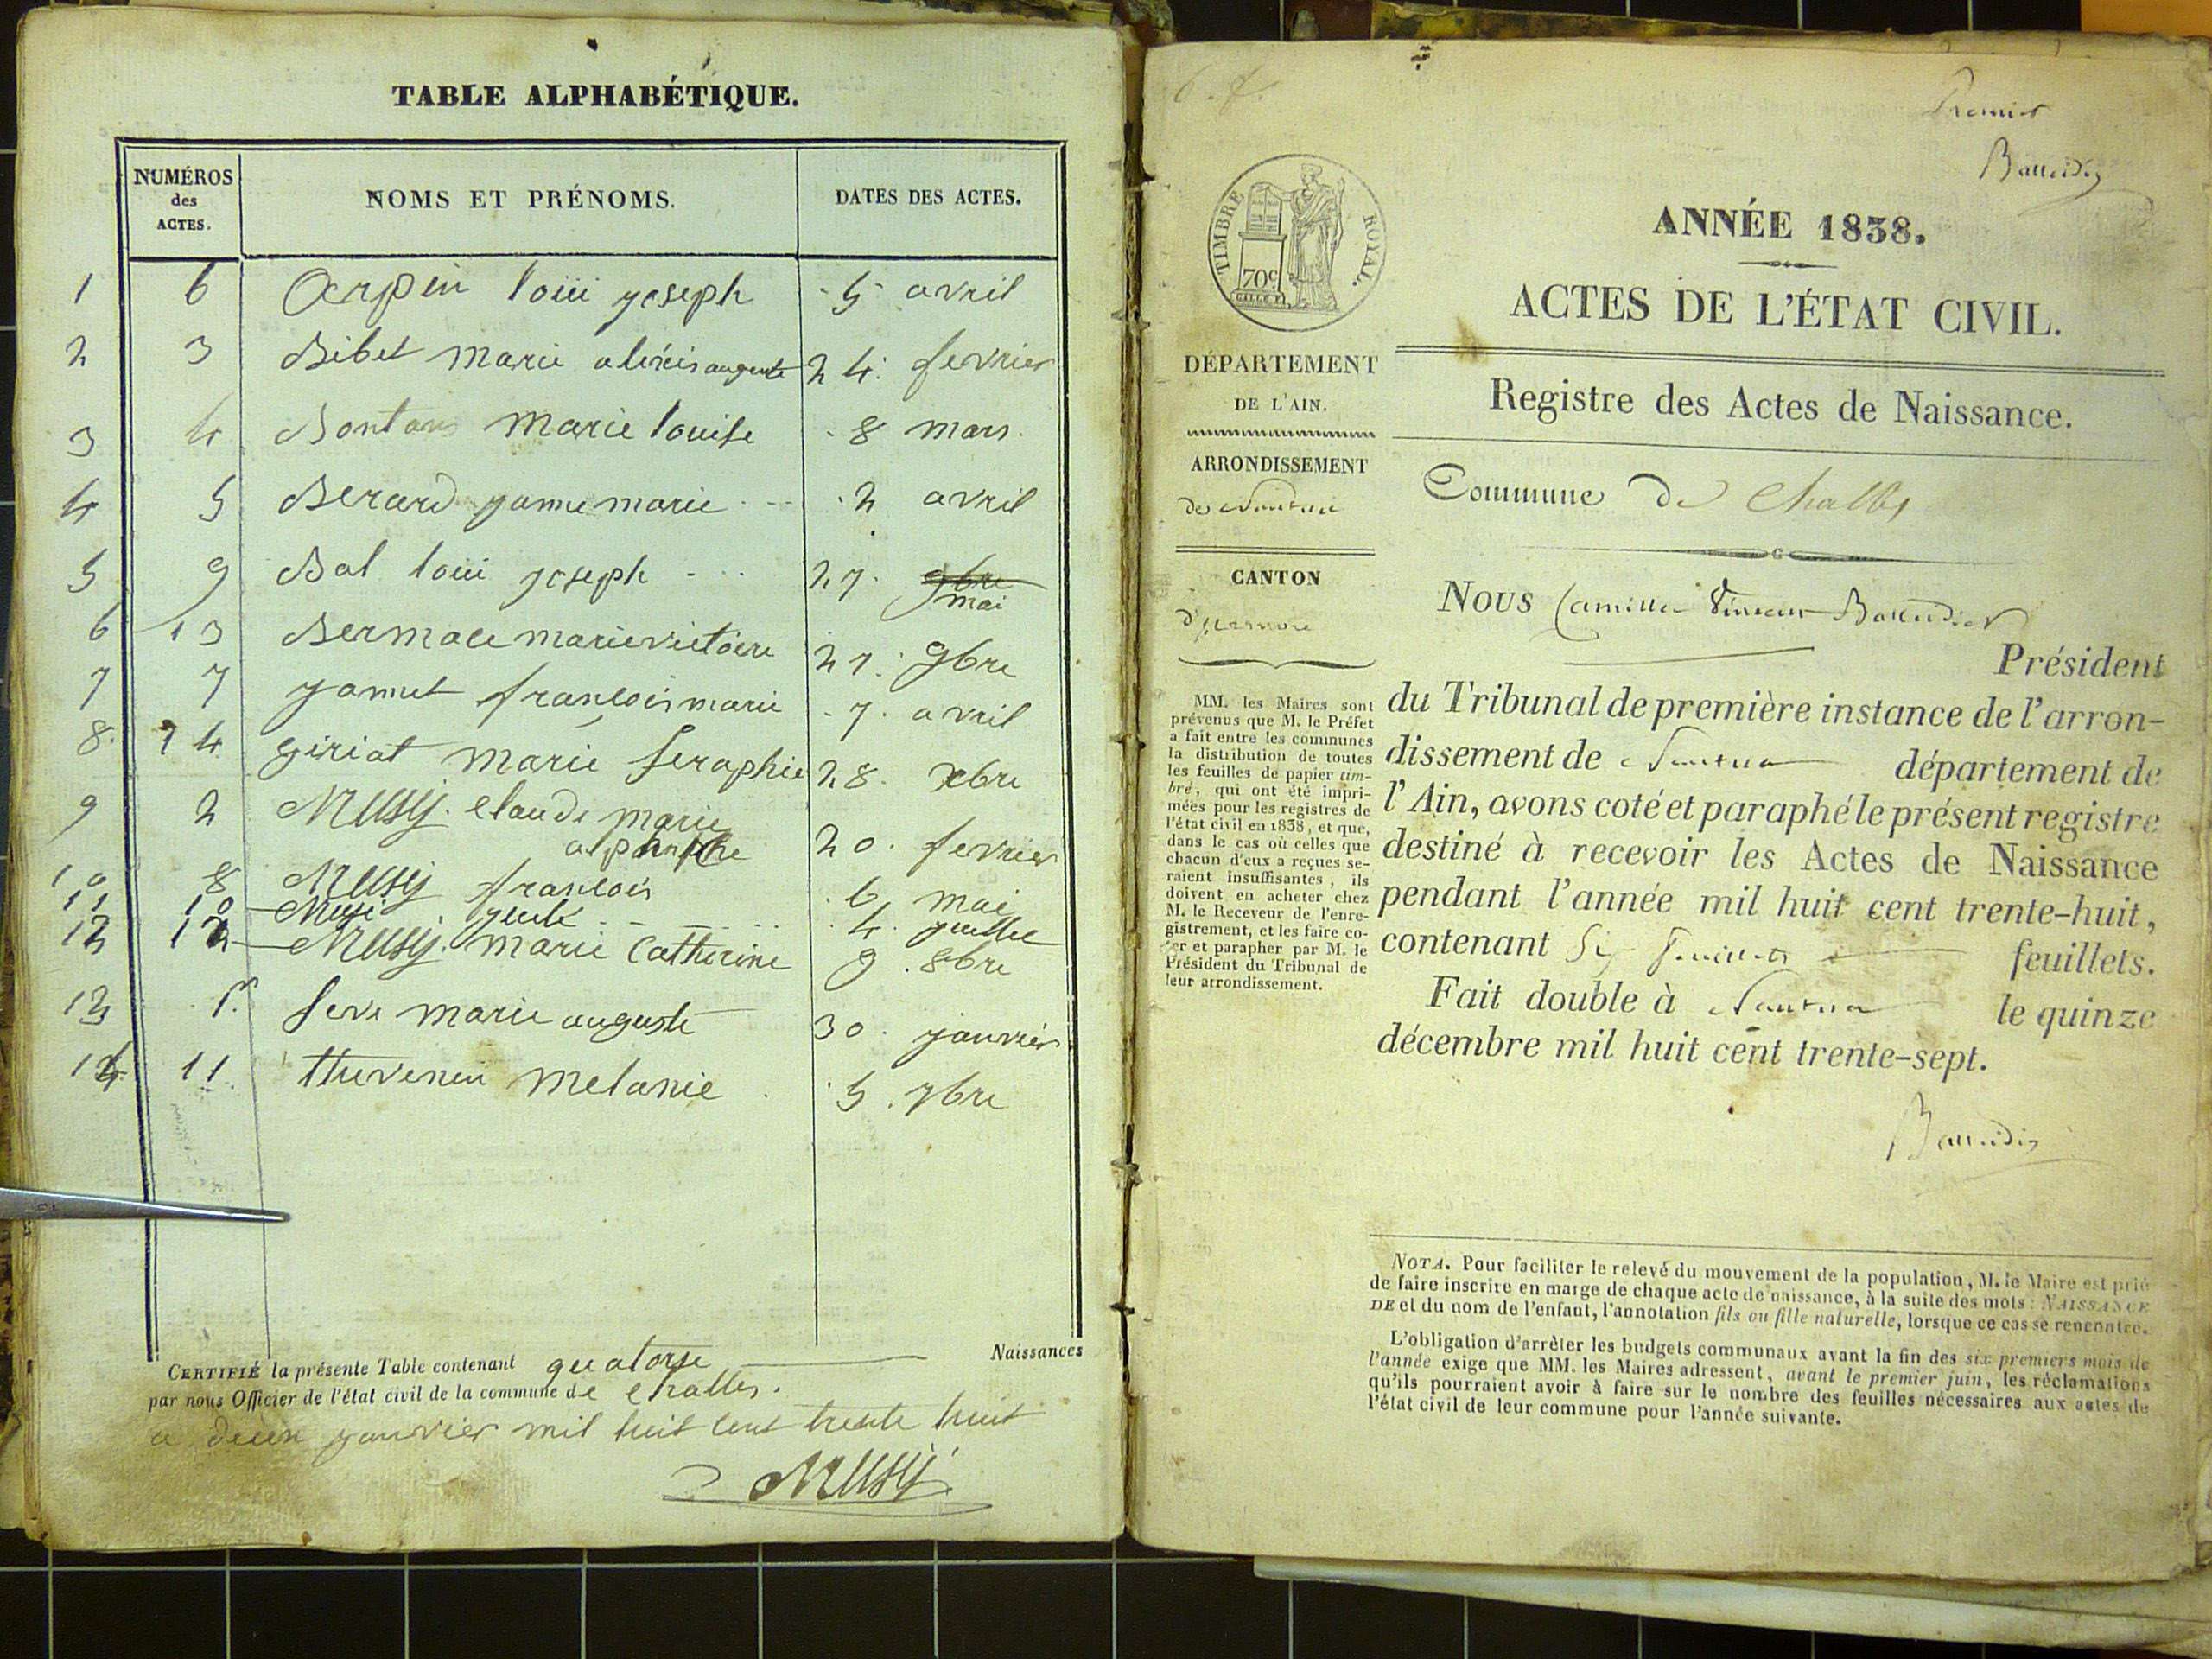 TABLE ALPHABÉTIQUE.
NUMÉROS des ACTES.
NOMS ET PRÉNOMS.
DATES DES ACTES.
1 6 Arpin loui joseph 5 avril
2 3 Bibet marie alexis auguste 24. fevrier
3 4 Bontan marie louise 8 mars
4 5 Berard janne marie 2 avril
5 9 Bal loui joseph 27. 9bre mai
6 13 marie victoire 27. 9bre
7 7 jamet francois marie 7. avril
8. 14 giriat marie seraphie 28. xbre
9 2 Musy. claude marie
alponse 20. fevrier
10 8 Musy francois 6 mai
11 10 Musi 4.
12 12 Musy. marie Catherine 9. 8bre
13 1er seve marie auguste 30. janvier
14 11. thevenin melanie 5. 7bre
CERTIFIÉ la présente Table contenant quatorse Naissances
par nous Officier de l'état civil de la commune de challes.
a deux janvier mil huit cent trente huit
Musy
Premier
ANNÉE 1838.
TIMBRE ROYAL.
70c
ACTES DE L'ÉTAT CIVIL.
DÉPARTEMENT
DE L'AIN.
Registre des Actes de Naissance.
ARRONDISSEMENT
de Nantua
Commune de Challes
CANTON
d'izernore
Nous Camille
Président
du Tribunal de première instance de l'arron-
dissement de Nantua département de
l'Ain, avons coté et paraphé le présent registre
destiné à recevoir les Actes de Naissance
pendant l'année mil huit cent trente-huit,
contenant feuillets.
Fait double à Nantua le quinze
décembre mil huit cent trente-sept.
MM. les Maires sont
prévenus que M. le Préfet
a fait entre les communes
la distribution de toutes
les feuilles de papier tim-
bré, qui ont été impri-
mées pour les registres de
l'état civil en 1838, et que,
dans le cas où celles que
chacun d'eux a reçues se-
raient insuffisantes, ils
doivent en acheter chez
M. le Receveur de l'enre-
gistrement, et les faire co-
ter et parapher par M. le
Président du Tribunal de
leur arrondissement.
NOTA. Pour faciliter le relevé du mouvement de la population, M. le Maire est prié
de faire inscrire en marge de chaque acte de naissance, à la suite des mots: NAISSANCE
DE et du nom de l'enfant, l'annotation fils ou fille naturelle, lorsque ce cas se rencontre.
L'obligation d'arrêter les budgets communaux avant la fin des six premiers mois de
l'année exige que MM. les Maires adressent, avant le premier juin, les réclamations
qu'ils pourraient avoir à faire sur le nombre des feuilles nécessaires aux actes de
l'état civil de leur commune pour l'année suivante.